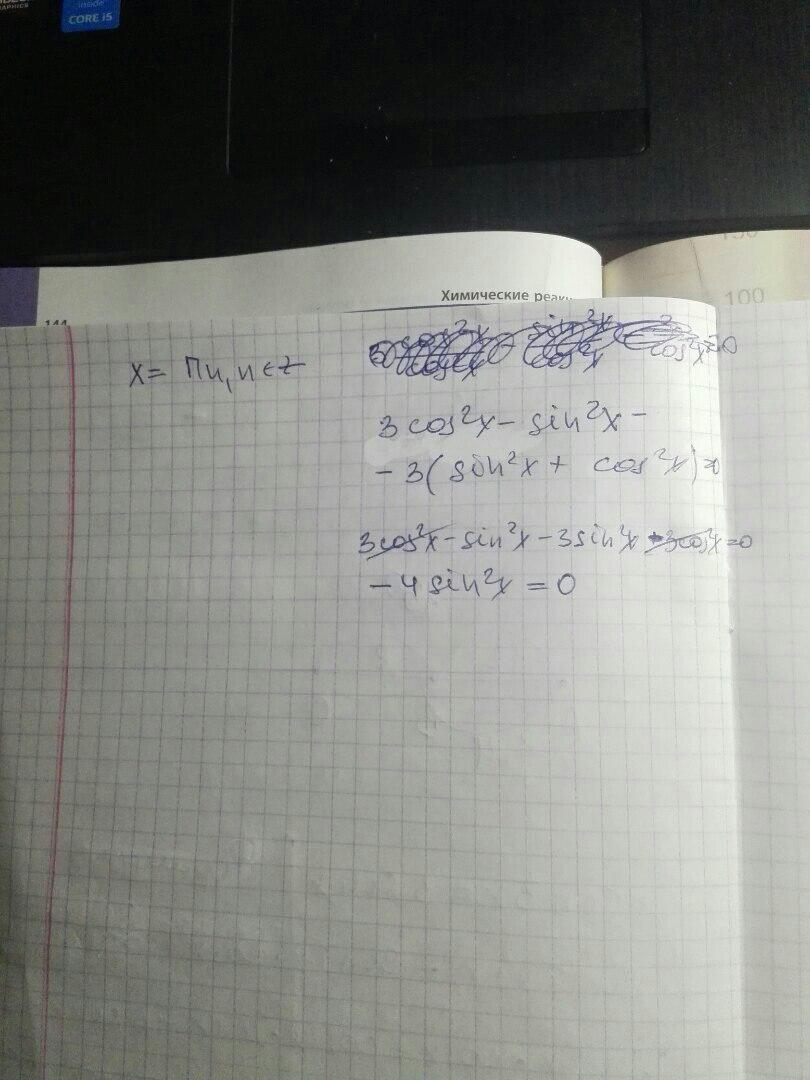 inside
CORE i5
Химические реак
144
100
x = πn, n ∈ Z
3cos²x - sin²x -
- 3(sin²x + cos²x) = 0
3cos²x - sin²x - 3sin²x - 3cos²x = 0
- 4 sin²x = 0